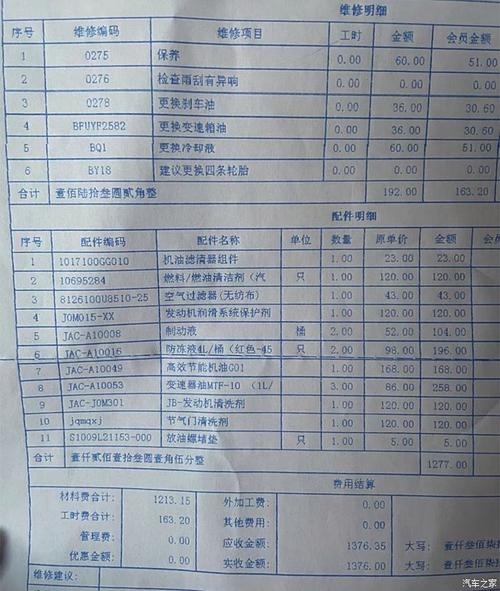 维修明细
序号 维修编码 维修项目 工时 金额 会员金额
1 0275 保养 0.00 60.00 51.00
2 0276 检查雨刮有异响 0.00 0.00 0.00
3 0278 更换刹车油 0.00 36.00 30.60
4 BFUYF2582 更换变速箱油 0.00 36.00 30.60
5 BQ1 更换冷却液 0.00 60.00 51.00
6 BY18 建议更换四条轮胎 0.00 0.00 0.00
合计 壹佰陆拾叁圆贰角整 192.00 163.20
配件明细
序号 配件编码 配件名称 单位 数量 原单价 金额 会员
1 1017100GG010 机油滤清器组件 1.00 23.00 23.00
2 10695284 燃料/燃油清洁剂（汽 只 1.00 120.00 120.00
3 8126100U8510-25 空气过滤器(无纺布) 1.00 43.00 43.00
4 JOM015-XX 发动机润滑系统保护剂 1.00 120.00 120.00
5 JAC-A10008 制动液 桶 2.00 52.00 104.00
6 JAC-A10016 防冻液4L/桶（红色-45 只 2.00 98.00 196.00
7 JAC-A10049 高效节能机油G01 1.00 168.00 168.00
8 JAC-A10053 变速器油MTF-10 （1L/ 3.00 86.00 258.00
9 JAC-JOM301 JB-发动机清洗剂 1.00 120.00 120.00
10 jqmqxj 节气门清洗剂 1.00 120.00 120.00
11 S1009L21153-000 放油螺堵垫 只 1.00 5.00 5.00
合计 壹仟贰佰壹拾叁圆壹角伍分整 1277.00
费用结算
材料费合计: 1213.15 外加工费: 0.00
工时费合计: 163.20 其他费用: 0.00
管理费: 0.00 应收金额: 1376.35 大写: 壹仟叁佰柒
优惠金额: 0.00 实收金额: 1376.00 大写: 壹仟叁佰柒
维修建议:
汽车之家